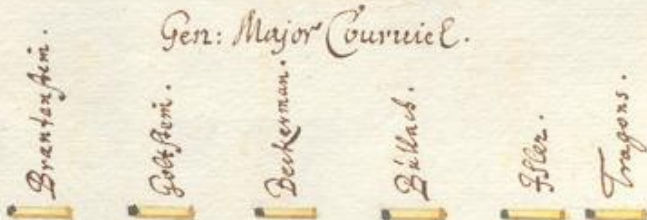 Gen: Major Courvicl.
Brantanstein.
Goltstein.
Beckerman.
Büllach.
Isler.
Tragons.